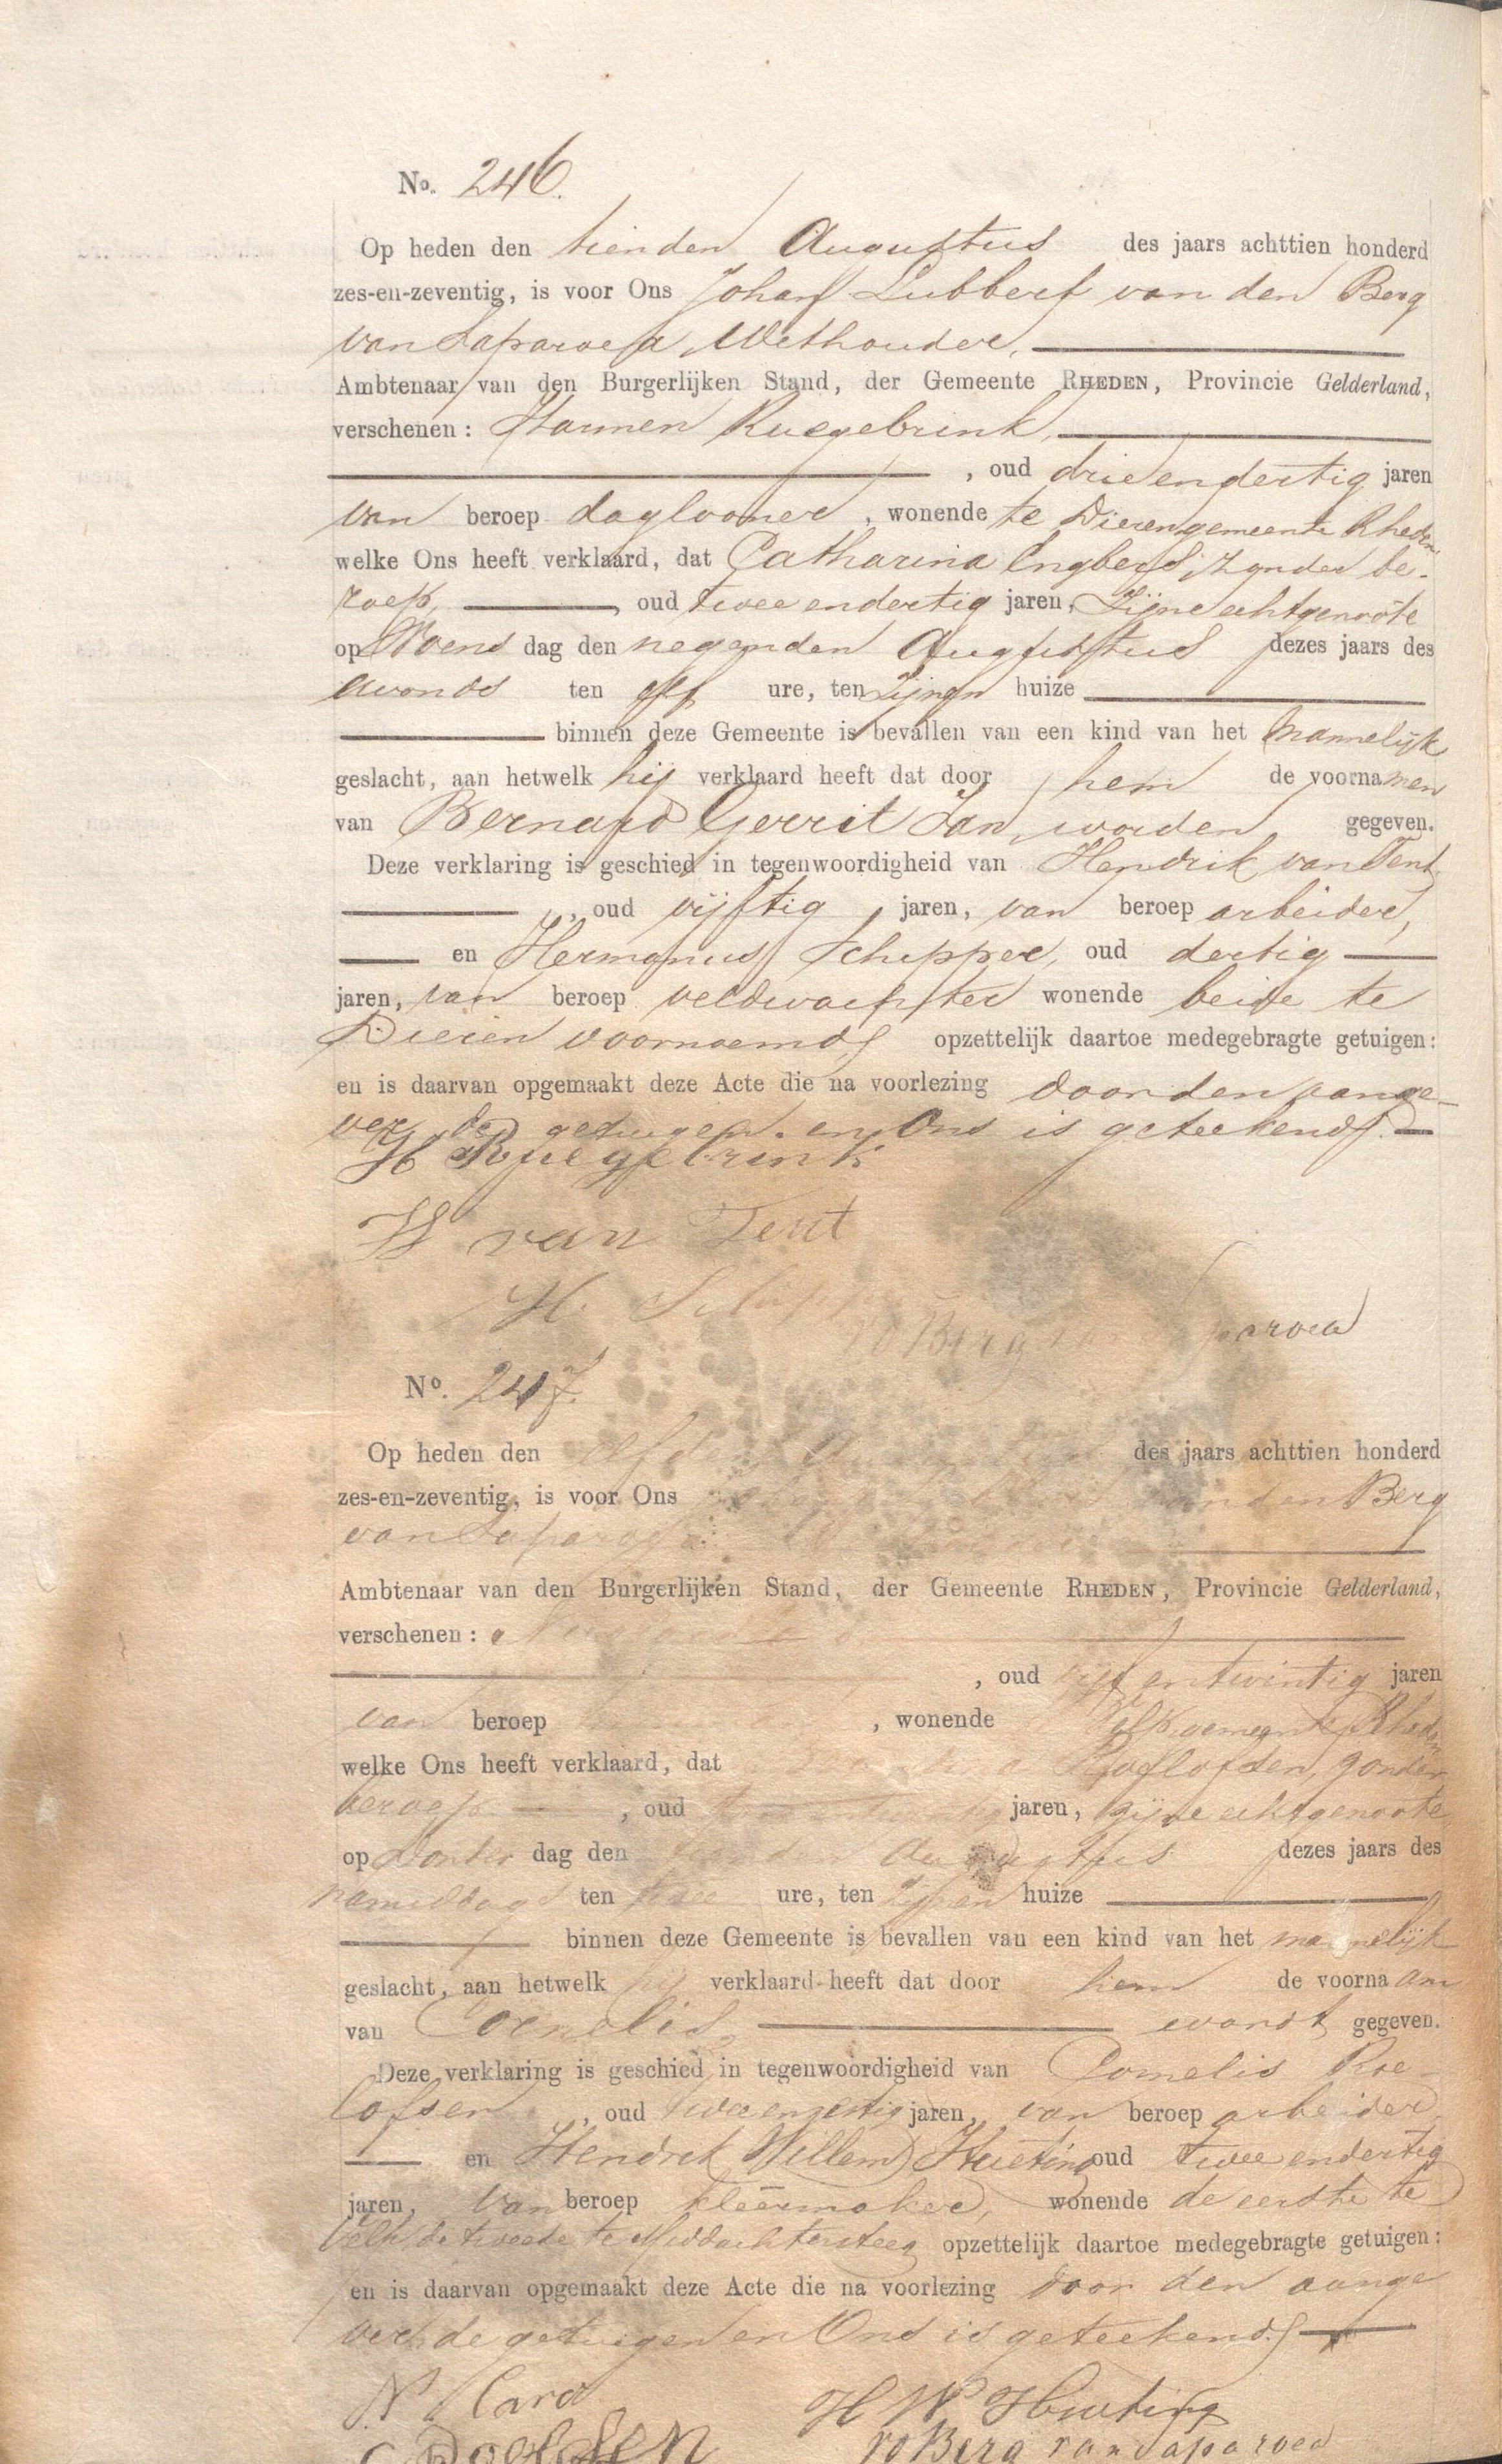 No. 246.
Op heden den tienden Augustus des jaars achttien honderd
zes-en-zeventig, is voor Ons Johan Lubbert van den Berg
van Saparoea, Wethouder,
Ambtenaar van den Burgerlijken Stand, der Gemeente RHEDEN, Provincie Gelderland,
verschenen: Harmen Ruegebrink,
, oud drie en dertig jaren
van beroep daglooner, wonende te Dieren gemeente Rheden
welke Ons heeft verklaard, dat Catharina Engbers, zonder be-
roep, oud twee en dertig jaren, Zijne echtgenoote
op Woensdag den negenden Augustus dezes jaars des
avonds ten elf ure, ten Zijnen huize
binnen deze Gemeente is bevallen van een kind van het mannelijk
geslacht, aan hetwelk hij verklaard heeft dat door hem de voornamen
van Bernard Gerrit Jan, worden gegeven.
Deze verklaring is geschied in tegenwoordigheid van Hendrik van Tent
, oud vijftig jaren, van beroep arbeider,
en Hermanus Schipper, oud dertig
jaren, van beroep veldwachter wonende beide te
Dieren voornoemd, opzettelijk daartoe medegebragte getuigen:
en is daarvan opgemaakt deze Acte die na voorlezing door den aange-
ver, de getuigen en Ons is geteekend.
H Ruegebrink
H van Tent
H. Schipp
vd Berg van paroea
No. 247.
Op heden den elfden des jaars achttien honderd
zes-en-zeventig, is voor Ons van den Berg
van Saparoea
Ambtenaar van den Burgerlijken Stand, der Gemeente RHEDEN, Provincie Gelderland,
verschenen:
, oud vijf en twintig jaren
van beroep , wonende gemeente Rheden
welke Ons heeft verklaard, dat Roelofsen, zonder
beroep , oud jaren, zijne echtgenoote
op Donderdag den tienden Augustus dezes jaars des
namiddags ten twee ure, ten Zijnen huize
binnen deze Gemeente is bevallen van een kind van het mannelijk
geslacht, aan hetwelk hij verklaard heeft dat door hem de voornaam
van Cornelis wordt gegeven.
Deze verklaring is geschied in tegenwoordigheid van Cornelis Roe-
lofsen , oud twee en zestig jaren, van beroep arbeider
en Hendrik Willem Hueting oud twee en dertig
jaren, van beroep kleermaker, wonende de eerste te
de tweede te Middachtersteeg opzettelijk daartoe medegebragte getuigen:
en is daarvan opgemaakt deze Acte die na voorlezing door den aange
ver, de getuigen en Ons is geteekend.
H W Hueting
C Roelofsen vd Berg van Saparoea